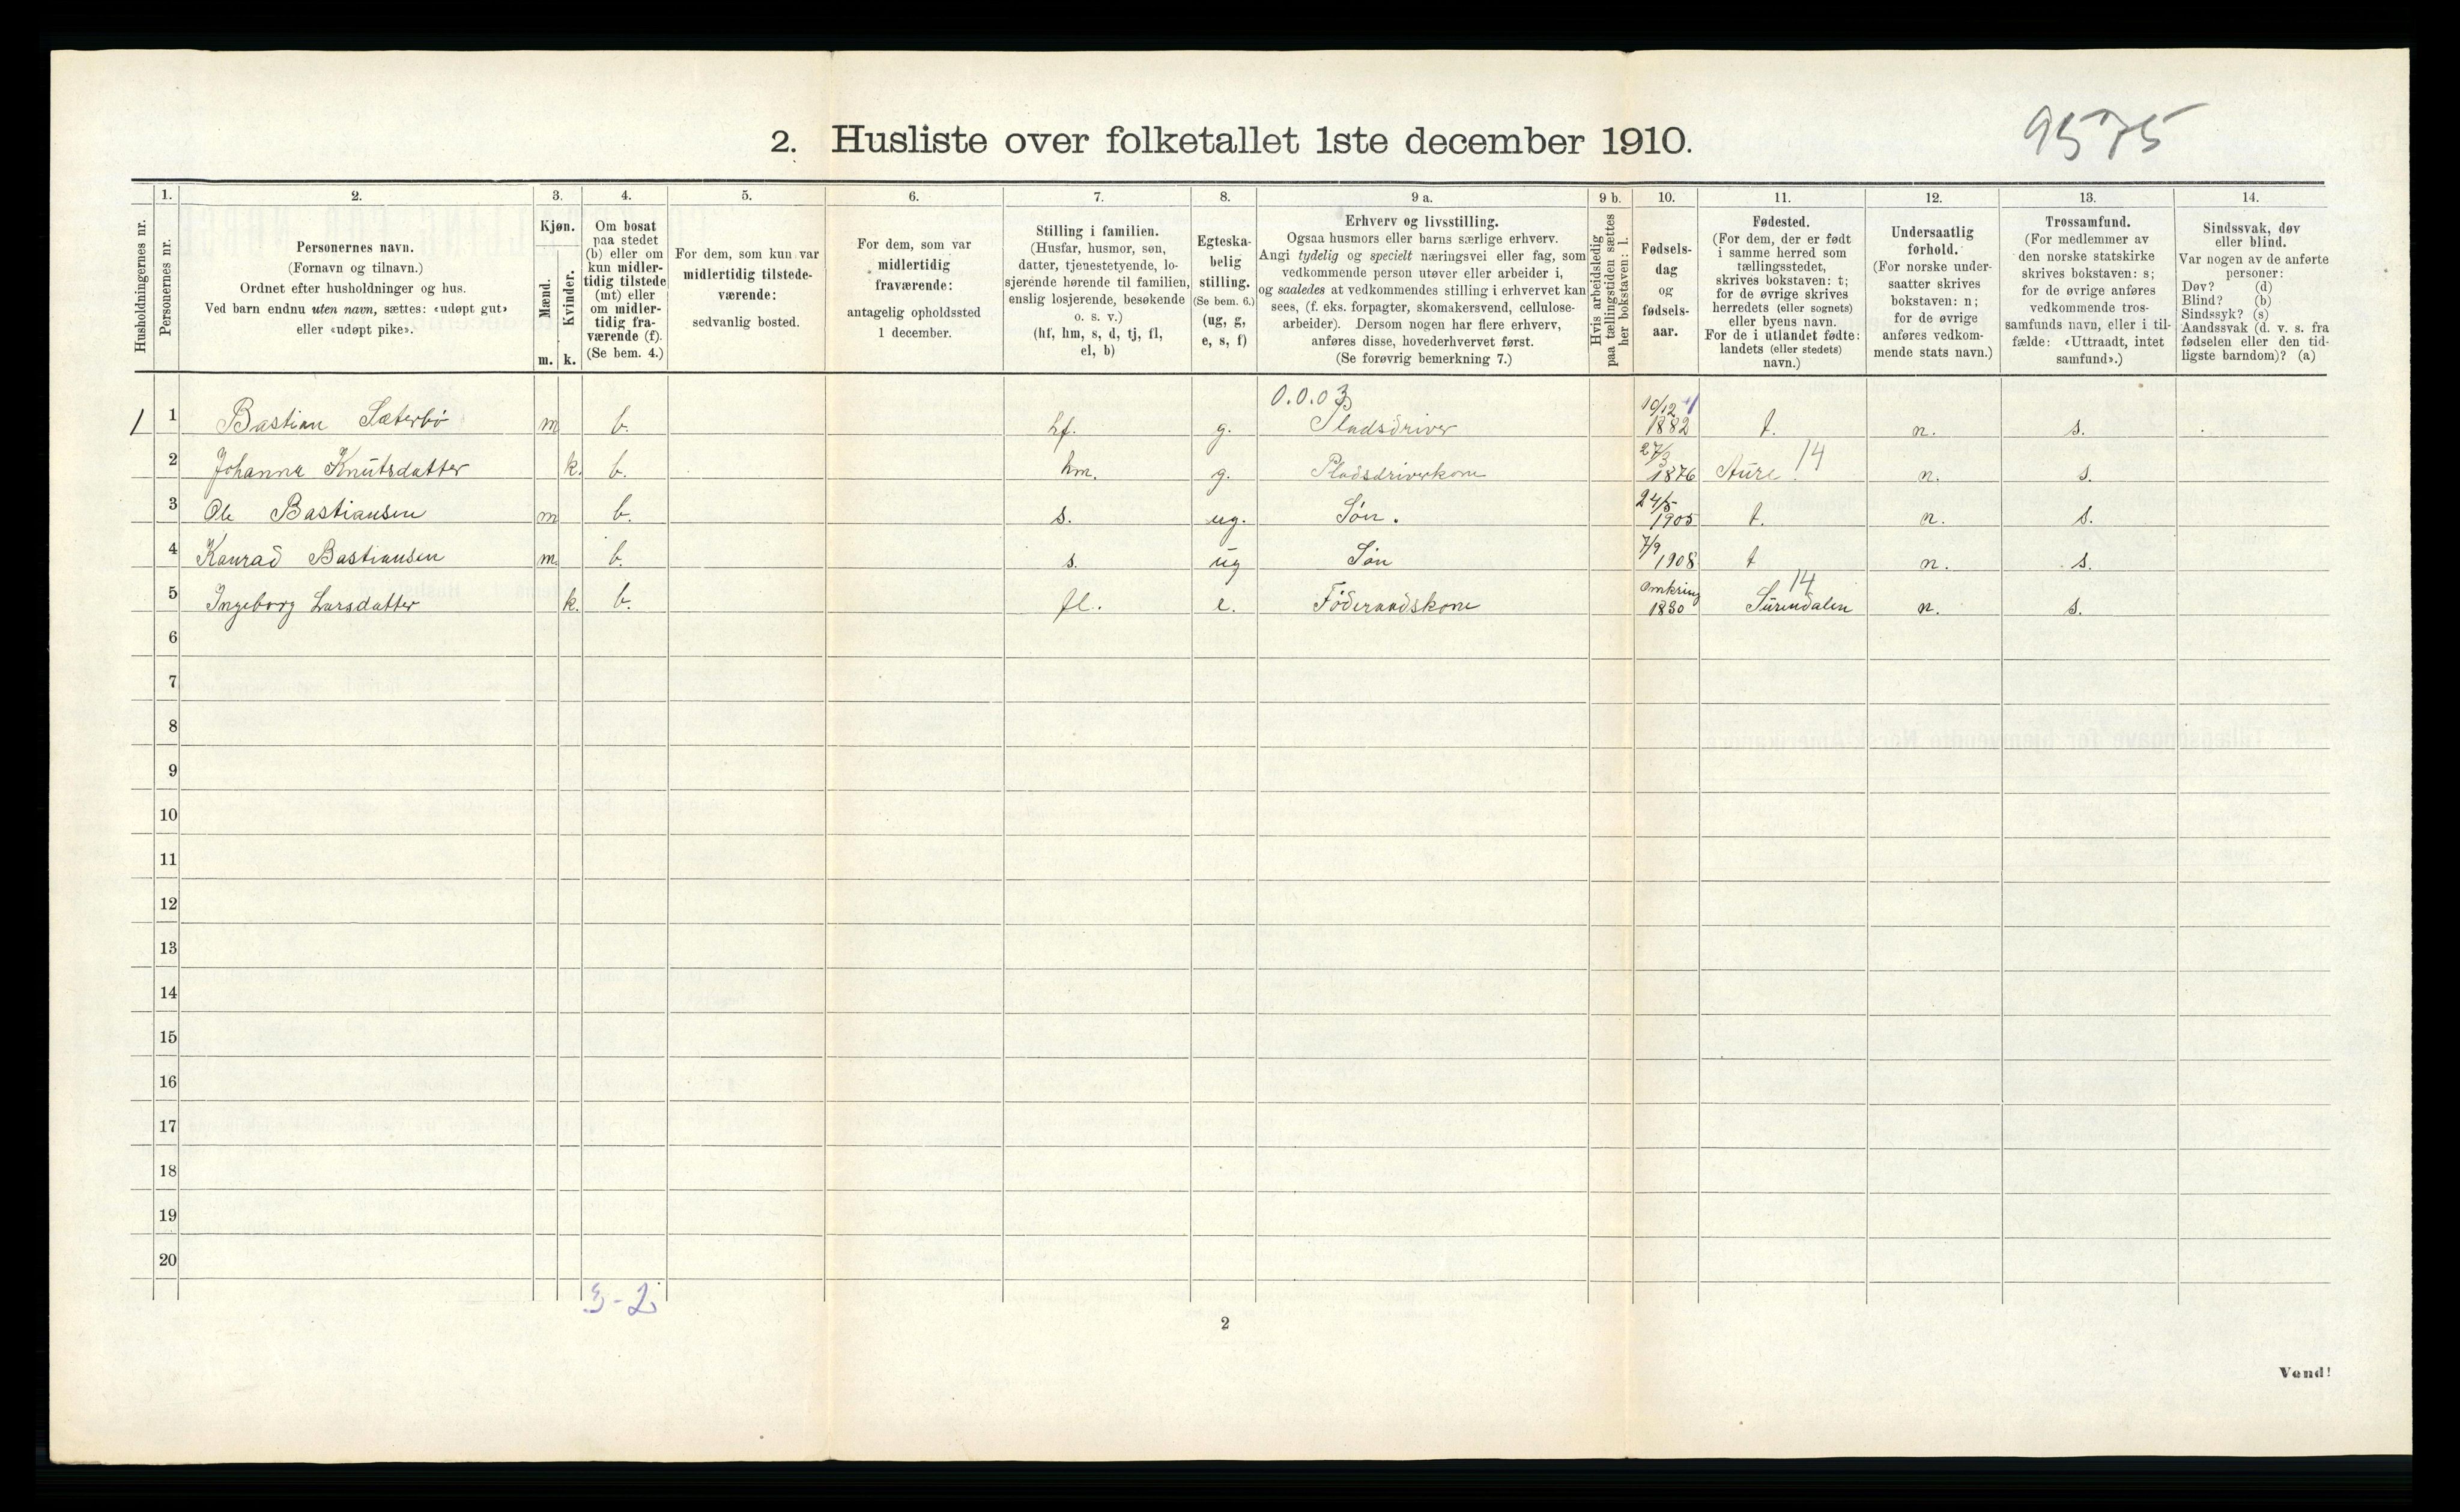 9575
2. Husliste over folketallet 1ste december 1910.
Husholdningernes nr.
1. Personernes nr.
2. Personernes navn. (Fornavn og tilnavn.) Ordnet efter husholdninger og hus. Ved barn endnu uten navn, sættes: «udøpt gut» eller «udøpt pike».
3. Kjøn. Mænd. m. Kvinder. k.
4. Om bosat paa stedet (b) eller om kun midlertidig tilstede (mt) eller om midlertidig fraværende (f). (Se bem. 4.)
5. For dem, som kun var midlertidig tilstedeværende: sedvanlig bosted.
6. For dem, som var midlertidig fraværende: antagelig opholdssted 1 december.
7. Stilling i familien. (Husfar, husmor, søn, datter, tjenestetyende, losjerende hørende til familien, enslig losjerende, besøkende o. s. v.) (hf, hm, s, d, tj, fl, el, b)
8. Egteskabelig stilling. (Se bem. 6.) (ug, g, e, s, f)
9 a. Erhverv og livsstilling. Ogsaa husmors eller barns særlige erhverv. Angi tydelig og specielt næringsvei eller fag, som vedkommende person utøver eller arbeider i, og saaledes at vedkommendes stilling i erhvervet kan sees, (f. eks. forpagter, skomakersvend, cellulosearbeider). Dersom nogen har flere erhverv, anføres disse, hovederhvervet først. (Se forøvrig bemerkning 7.)
9 b. Hvis arbeidsledig paa tællingstiden sættes her bokstaven: l.
10. Fødselsdag og fødselsaar.
11. Fødested. (For dem, der er født i samme herred som tællingsstedet, skrives bokstaven: t; for de øvrige skrives herredets (eller sognets) eller byens navn. For de i utlandet fødte: landets (eller stedets) navn.)
12. Undersaatlig forhold. (For norske undersaatter skrives bokstaven: n; for de øvrige anføres vedkommende stats navn.)
13. Trossamfund. (For medlemmer av den norske statskirke skrives bokstaven: s; for de øvrige anføres vedkommende trossamfunds navn, eller i tilfælde: «Uttraadt, intet samfund».)
14. Sindssvak, døv eller blind. Var nogen av de anførte personer: Døv? (d) Blind? (b) Sindssyk? (s) Aandssvak (d. v. s. fra fødselen eller den tidligste barndom)? (a)
1 1 Bastian Sæterbø m b. hf. g. 0.0.03 Pladsdriver 10/12 1882 t. n. s.
2 Johanna Knutsdatter k. b. hm. g. Pladsdriverkone 27/3 1876 Aure. 14 n. s.
3 Ole Bastiansen m b. s. ug. Søn. 24/5 1905 t. n. s.
4 Konrad Bastiansen m. b. s. ug Søn 7/9 1908 t n. s.
5 Ingeborg Larsdatter k. b. fl. e. Föderaadskone omkring 1830 Surendalen 14 n. s.
6
7
8
9
10
11
12
13
14
15
16
17
18
19
20
3-2
2
Vend!